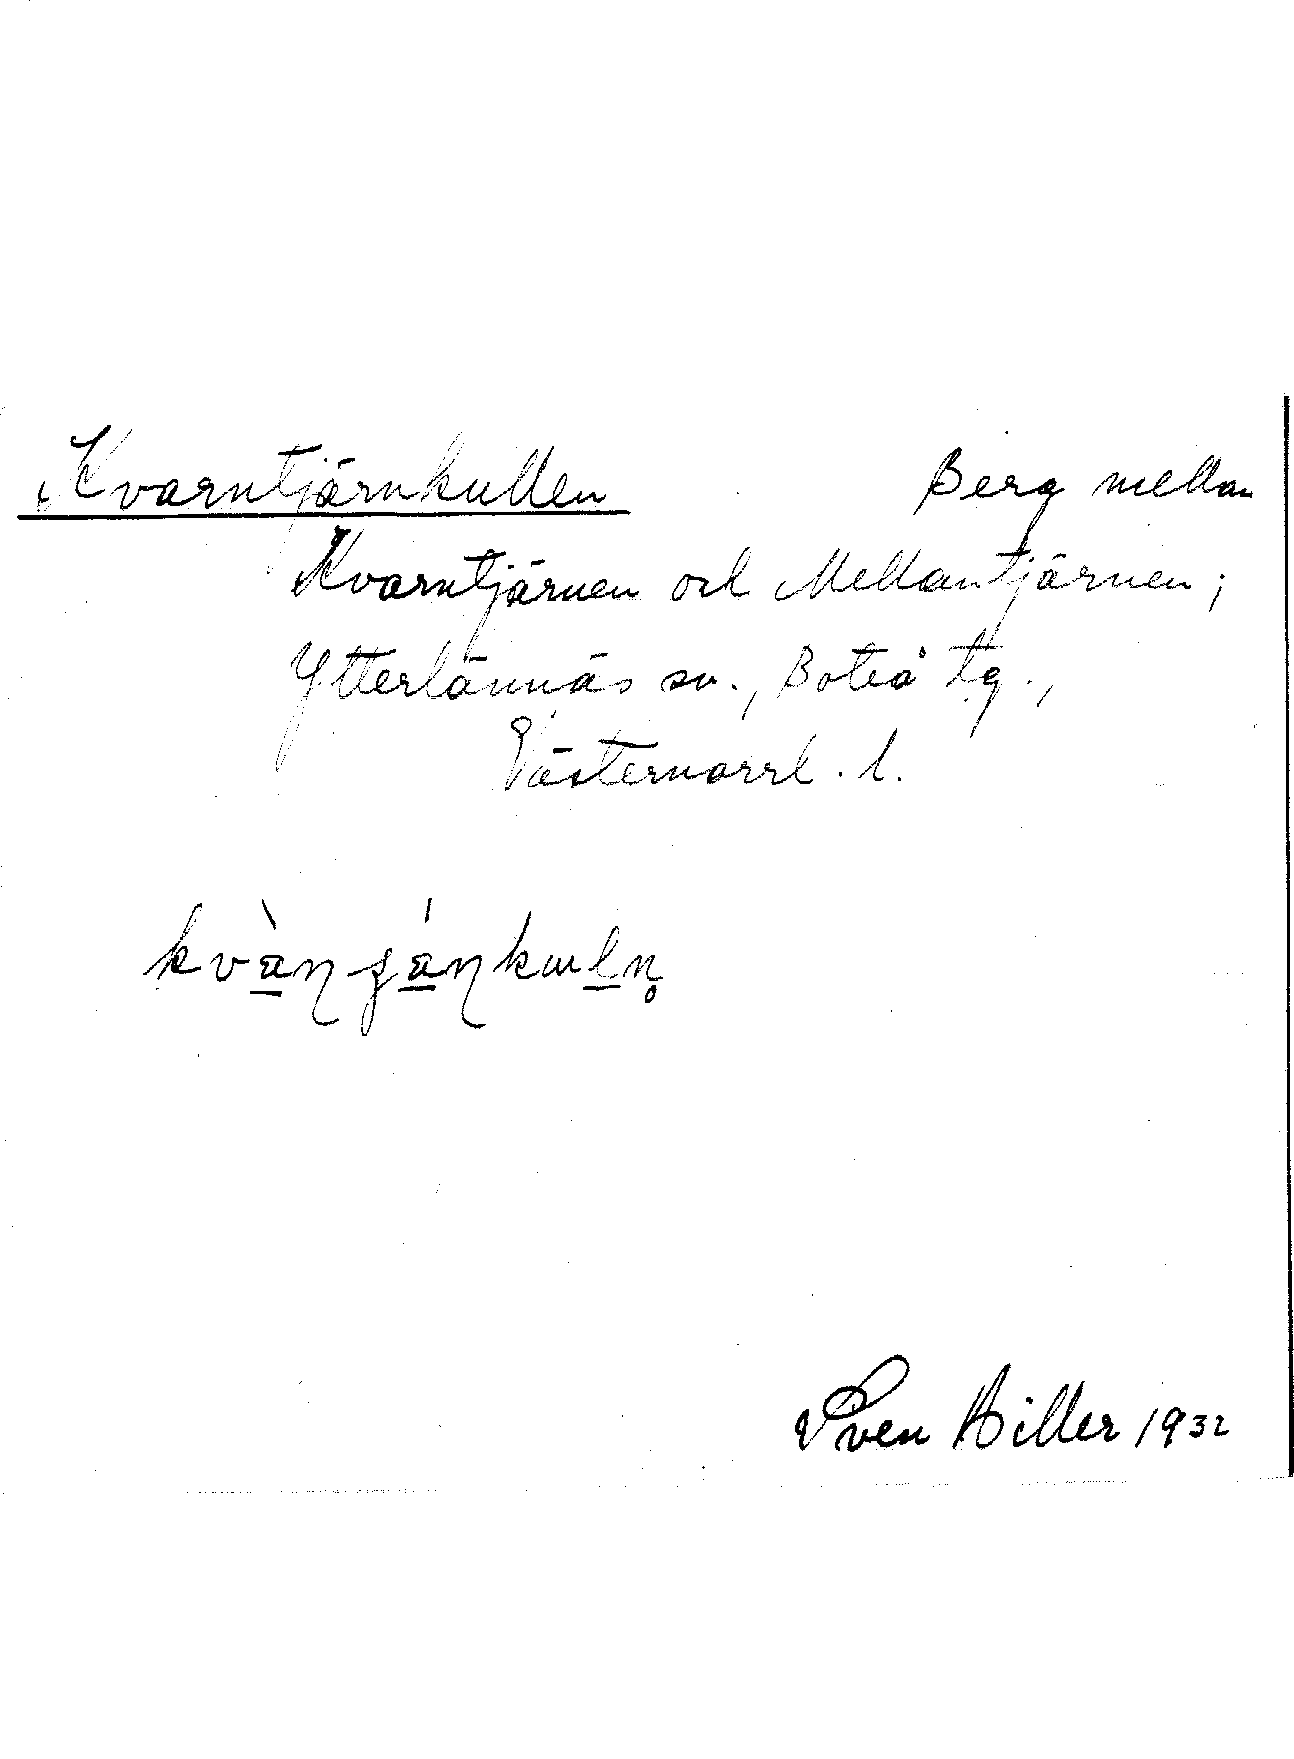 Kvarntjärnkullen Berg mellan
Kvarntjärnen och Mellantjärnen;
Ytterlännäs sn., Boteå tg.,
Västernorrl. l.
Sven Hiller 1932